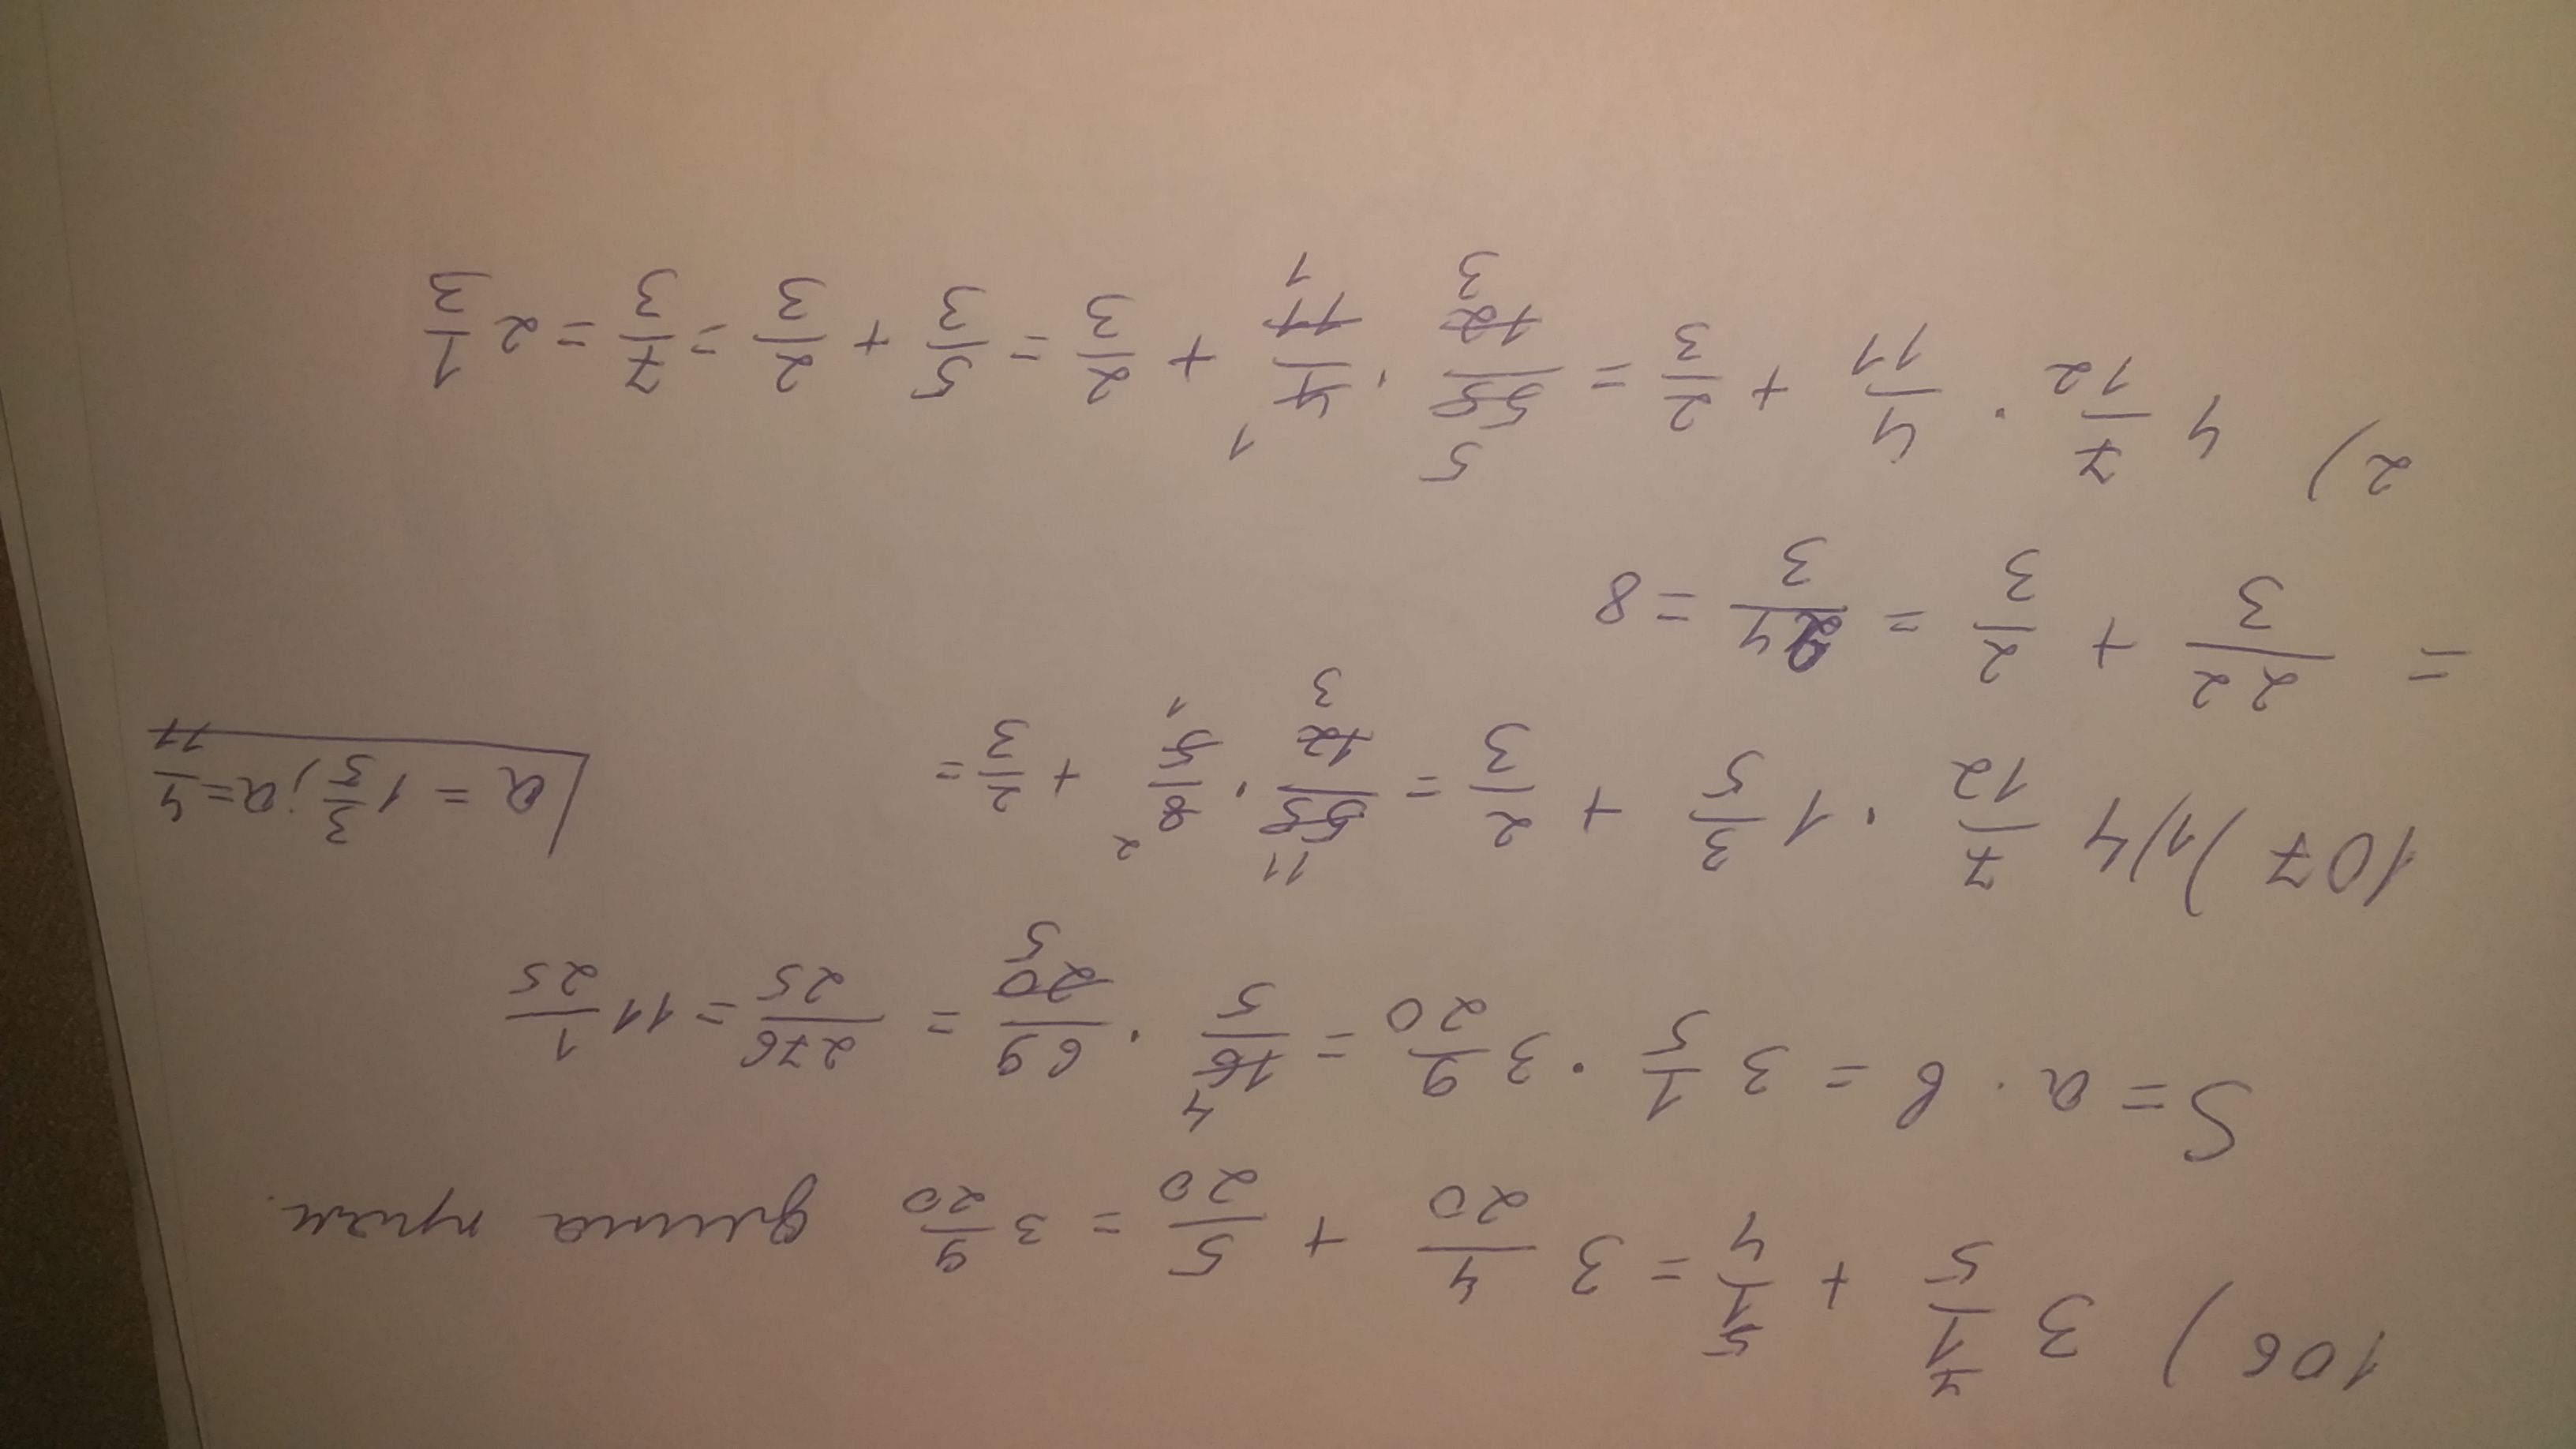 106) 3 1/5 + 1/4 = 3 4/20 + 5/20 = 3 9/20 длина прям.
S = a · b = 3 1/5 · 3 9/20 = 16/5 · 69/20 = 276/25 = 11 1/25
107) 1) 4 7/12 · 1 3/5 + 2/3 = 55/12 · 8/5 + 2/3 = a = 1 3/5; a = 4/11
= 22/3 + 2/3 = 24/3 = 8
2) 4 7/12 · 4/11 + 2/3 = 55/12 · 4/11 + 2/3 = 5/3 + 2/3 = 7/3 = 2 1/3